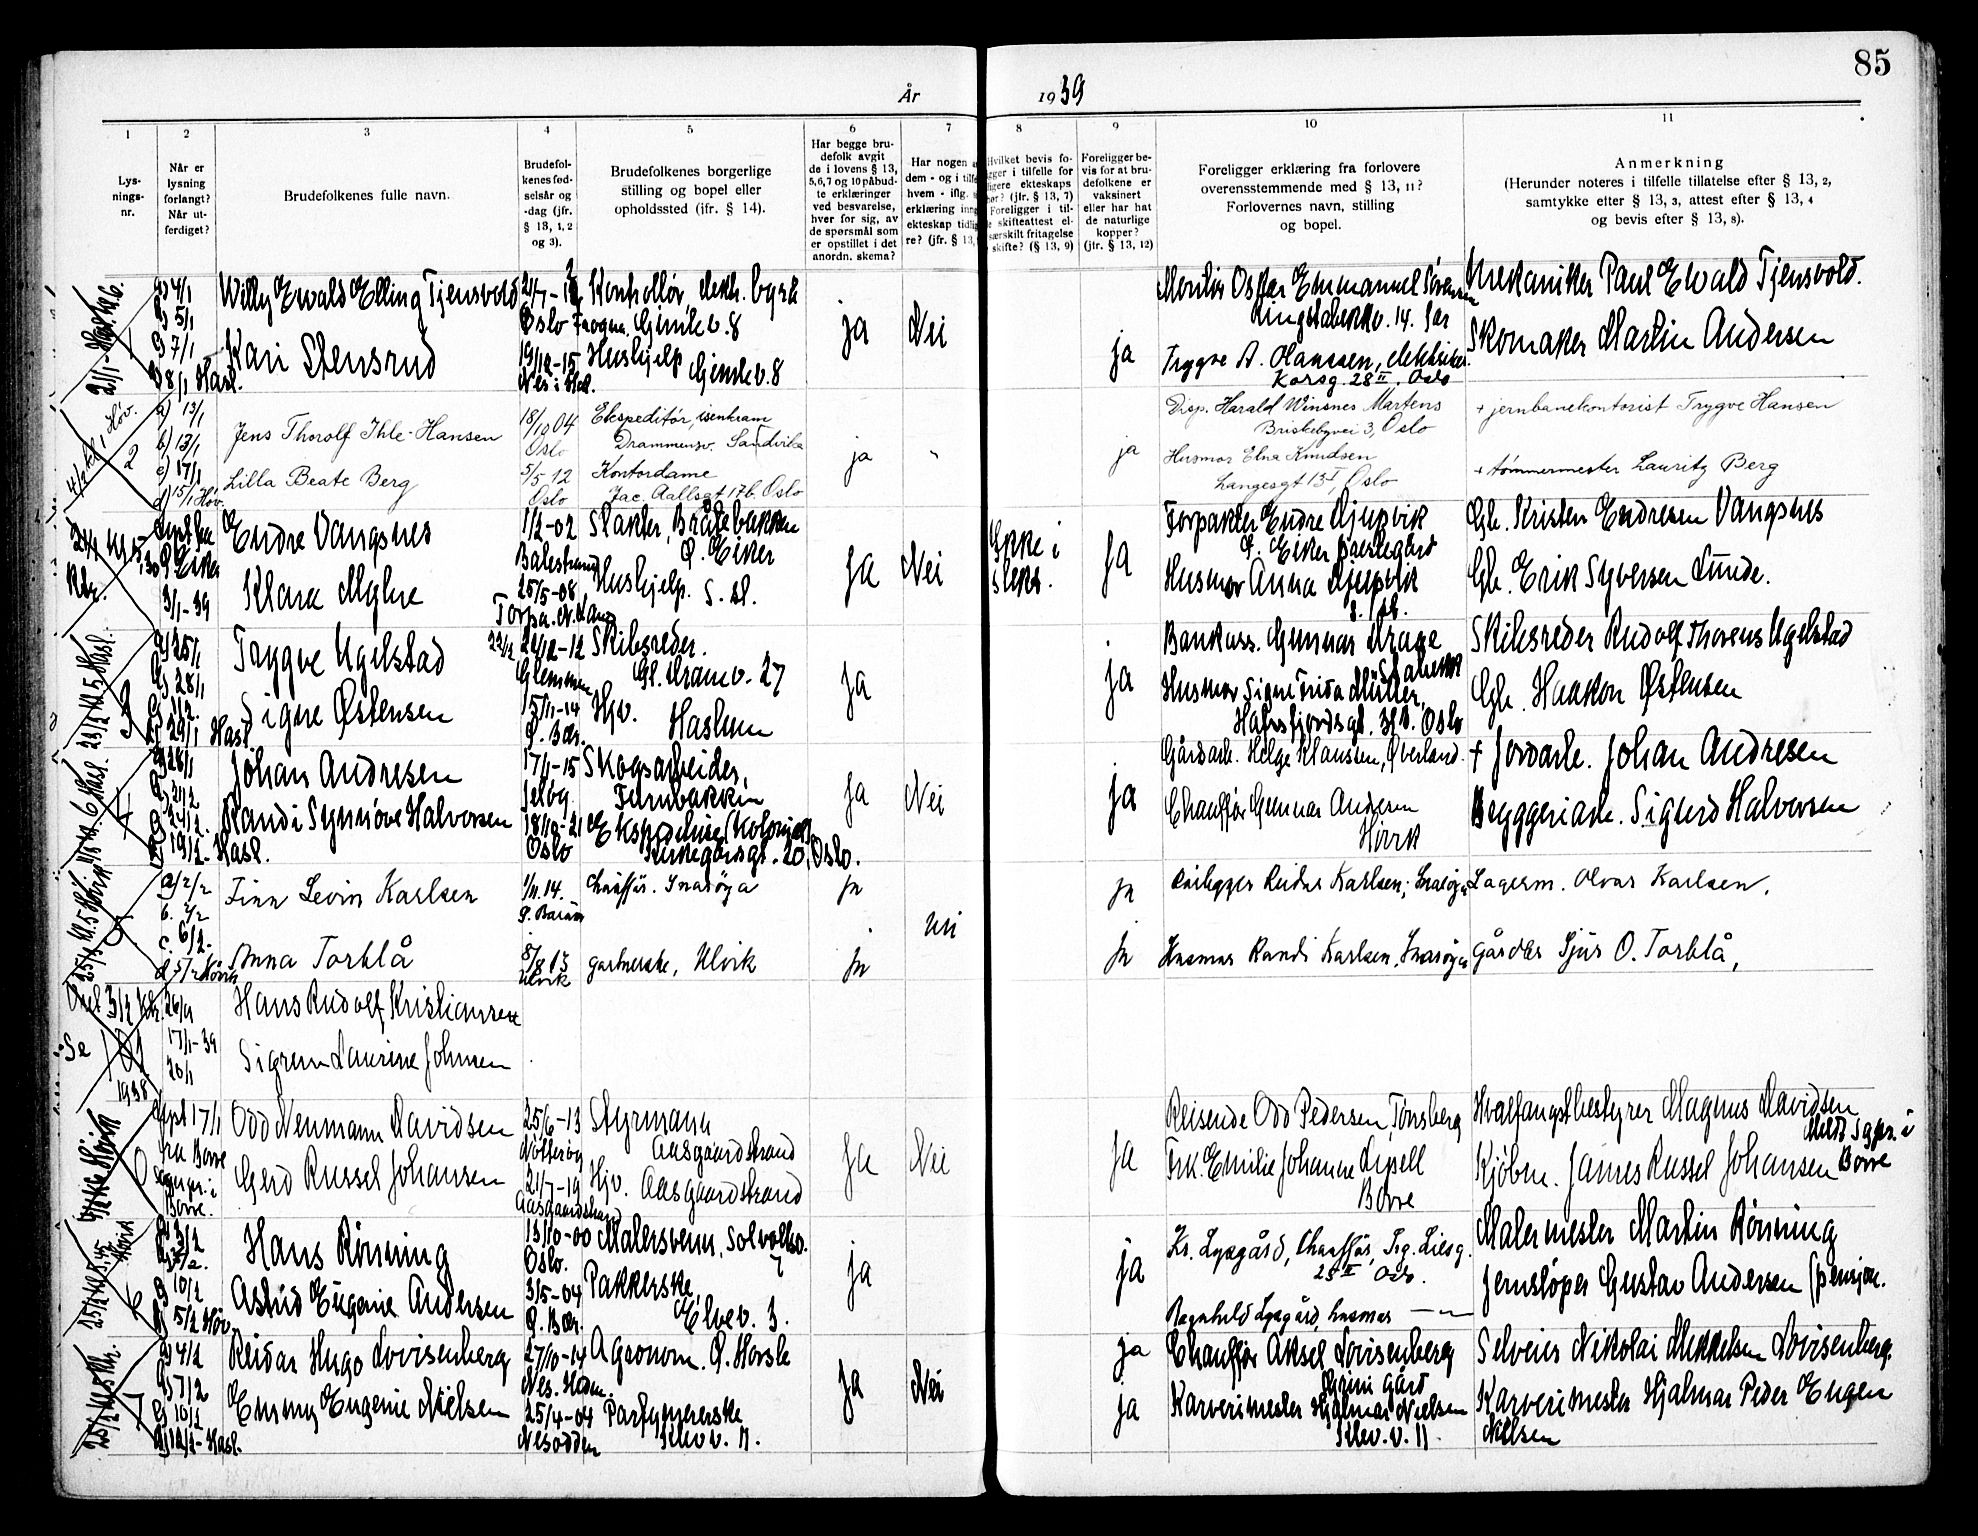 85
År 1939
1 2 3 4 5 6 7 8 9 10 11
Lys-
nings-
nr.
Når er
lysning
forlangt?
Når ut-
ferdiget?
Brudefolkenes fulle navn.
Brudefol-
kenes fød-
selsår og
-dag (jfr.
§ 13, 1, 2
og 3).
Brudefolkenes borgerlige
stilling og bopel eller
opholdssted (jfr. § 14).
Har begge bru-
defolk avgit
de i lovens § 13,
5,6,7 og 10 påbud-
te erklæringer
ved besvarelse,
hver for sig, av
de spørsmål som
er opstillet i det
anordn. skema?
Har nogen
dem - og i tilfe
hvem - iflg.
erklæring inng
ekteskap tidlig
re? (jfr. § 13,
Hvilket bevis fo-
gger i tilfelle for
ligere ekteskaps
hør? (jfr. § 13, 7)
Foreligger i til-
le skifteattest el-
særskilt fritagelse
skifte? (§ 13, 9)
Foreligger be-
vis for at bru-
defolkene er
vaksinert
eller har hat
de naturlige
kopper?
(jfr. § 13, 12)
Foreligger erklæring fra forlovere
overensstemmende med § 13, 11?
Forlovernes navn, stilling
og bopel.
Anmerkning
(Herunder noteres i tilfelle tillatelse efter § 13, 2,
samtykke efter § 13, 3, attest efter § 13, 4
og bevis efter § 13, 8).
1
a) 4/1
b) 5/1
c) 7/1
d) 8/1 Hasl.
Willy Ewald Elling Tjensvold
Oslo
Kontrollør, elektr. byrå
Frogner. Gimlev. 8
Kari Stensrud
19/12-15
Nes i Hal.
Hushjelp
Gimlev. 8
ja Nei
ja
Montør Oskar Emmanuel Sørensen
Ringstabekkv. 14. Jar
Trygve A. Hanssen, elektriker
Korsg. 28 II. Oslo
Mekaniker Paul Ewald Tjensvold.
Skomaker Martin Andersen
2
a) 13/1
b) 13/1
c) 17/1
d) 15/1 Høv.
Jens Thorolf Ihle-Hansen
18/10 04
Oslo
Ekspeditør, isenkram
Drammensv. Sandvika
Lilla Beate Berg
5/5 12
Oslo
Kontordame
Jac. Aallsgt 17b. Oslo
ja "
ja
Disp. Harald Winsnes Martens
Briskebyvei 3, Oslo
Husmor Elna Knudsen
Langesgt 13 I, Oslo
+ jernbanekontorist Trygve Hansen
+ tømmermester Lauritz Berg
Ø. Eiker
3/1-39
Endre Vangsnes
1/2-02
Balestrand
Slakter, Bråtebakken
Ø. Eiker
Klara Myhre
25/5-08
Torpa. N. Land
Hushjelp. S. st.
ja Nei
Ikke i
slekt.
ja
Forpakter Endre Djupvik
Ø. Eiker prestegård
Husmor Anna Djupvik
S. st.
Gbr. Kristen Endresen Vangsnes
Gbr. Erik Syversen Lunde.
3
a) 25/1
b) 28/1
c) 1/2.
d) 29/1 Hasl.
Trygve Ugelstad
22/12-12
Glemmen
Skibsreder.
Gl. Dramv. 27
Signe Østensen
15/11-14
Ø. Bær.
Hjv.
Haslum
ja
ja
Bankass. Gunnar Krage
Stabekk
Husmor Signe Frida Müller,
Hafrsfjordsgt. Oslo
Skibsreder Rudolf Thorens Ugelstad
Gbr. Haakon Østensen
4
a) 28/1
19/2-Hasl.
Johan Andresen
17/1-15
Skogsarbeider,
Furubakken
Randi Synnøve Halvorsen
18/10-21
Oslo
Ekspeditrise (Kolonial)
Kirkegårdsgt. 20, Oslo.
ja Nei
ja
Gårdarb. Helge Klausen, Øverland.
Chauffør Gunnar Andersen
Høvik
+ Jordarb. Johan Andresen
Bryggeriarb. Sigurd Halvorsen
5
a) 2/2
b. 2/2
c. 6/2-
d. 5/2 Høvik
Finn Levin Karlsen
1/11. 14.
Ø. Bærum
Chauffør. Snarøya
Anna Torblå
8/8 13
Ulvik
gartnerske, Ulvik
ja
nei
ja
ja
ja
Reidar Karlsen, Snarøya
Husmor Randi Karlsen, Snarøya
Lagerm. Olvar Karlsen.
gårdbr Sjur O. Torblå,
17/1-39
20/1
1938
Hans Rudolf Kristiansen
Sigrun Laurine Johnsen
17/1
fra Borre
Borre.
Odd Neumann Davidsen
25/6-13
Nøtterøy
Styrmann
Aasgaardstrand
Gerd Russel Johansen
21/7-19
Aasgaardstrand
Hjv. Aasgaardstrand
ja Nei
ja
Reisende Odd Pedersen, Tønsberg
Frk. Emilie Johanne Lipell
Borre
Hvalfangstbestyrer Magnus Davidsen
Meldt Sgpr. i
Borre
Kjøbm. James Russel Johansen
6
a) 3/2
c) 10/2
d) 5/2 Høv.
Hans Rønning
13/10-00
Oslo.
Malersvenn, Solvollv.
7
Astrid Eugenie Andersen
3/5-04
Ø. Bær.
Pakkerske,
Elvev. 3.
ja
ja
Kr. Lysgård, Chauffør, Trg. Liesg.
25 II Oslo.
Ragnhild Lysgård, husmor — " —
Malermester Martin Rønning
Jernstøper Gustav Andersen (pensjon.
7
a) 4/2
b) 7/2
c) 10/2
d) 12/2-Hasl.
Reidar Hugo Lovisenberg
27/10-14
Nes. Hedm.
Agronom. Ø. Horsle
Emmy Eugenie Nielsen
25/4-04
Nesodden
Parfymererske
Klev v. 11.
ja Nei
ja
ja
Chauffør Aksel Lovisenberg
Grini gård
Garverimester Hjalmar Nielsen
Klev. v. 11
Selveier Nikolai Mikkelsen Lovisenberg.
Garverimester Hjalmar Peder Eugen
Nielsen